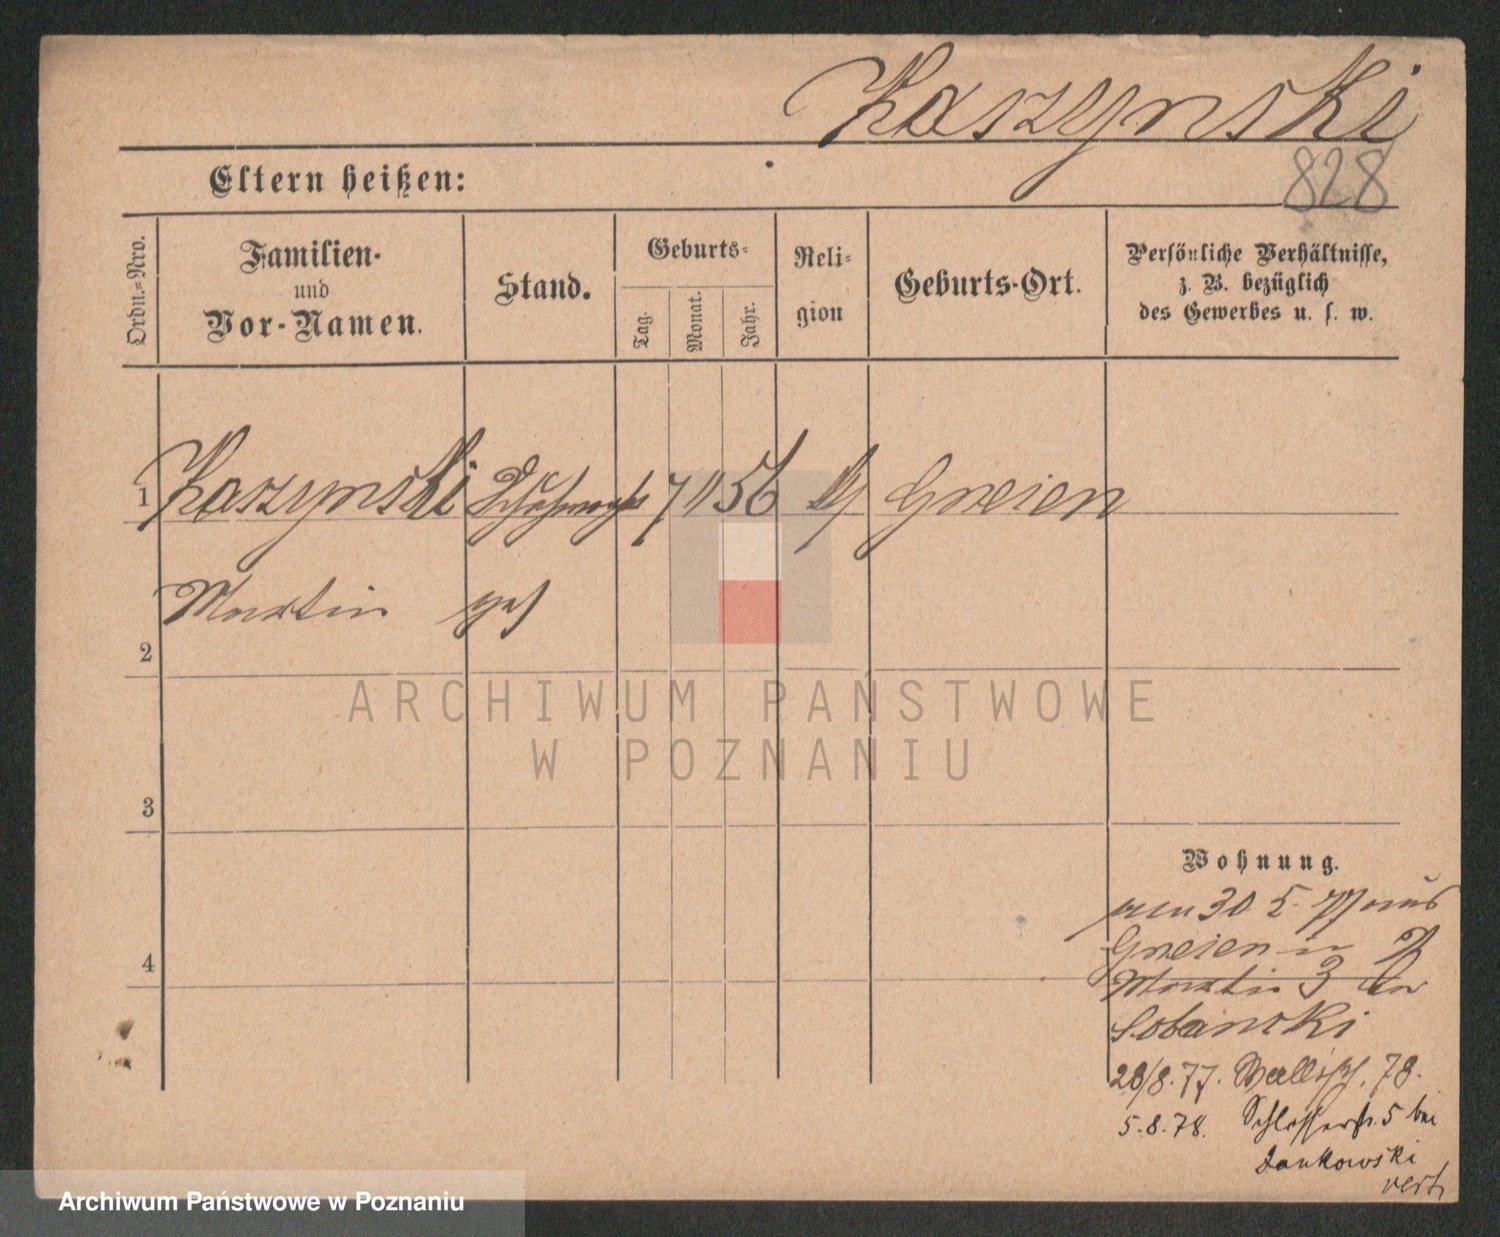 Kaszynski
828
Eltern heißen:
Ordn.=Nro.
Familien-
und
Vor-Namen.
Stand.
Geburts-
Tag.
Monat.
Jahr.
Reli-
gion
Geburts-Ort.
Persönliche Verhältnisse,
z. B. bezüglich
des Gewerbes u. s. w.
1 Kaszynski 7 11 56 Gneien
Martin
2
3
4
Wohnung.
30 5. 77 aus
Gneien in
Martin 3
Sobanski
28/8. 77. Wallisch. 78.
5.8.78. Schlosserstr. 5 bei
Jankowski
ARCHIWUM PAŃSTWOWE
W POZNANIU
Archiwum Państwowe w Poznaniu